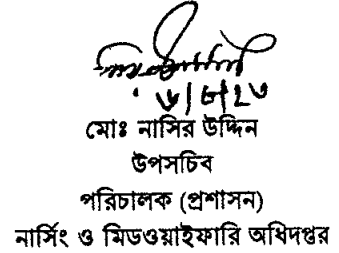 মোঃ নাসির উদ্দিন
উপসচিব
পরিচালক (প্রশাসন)
নার্সিং ও মিডওয়াইফারি অধিদপ্তর